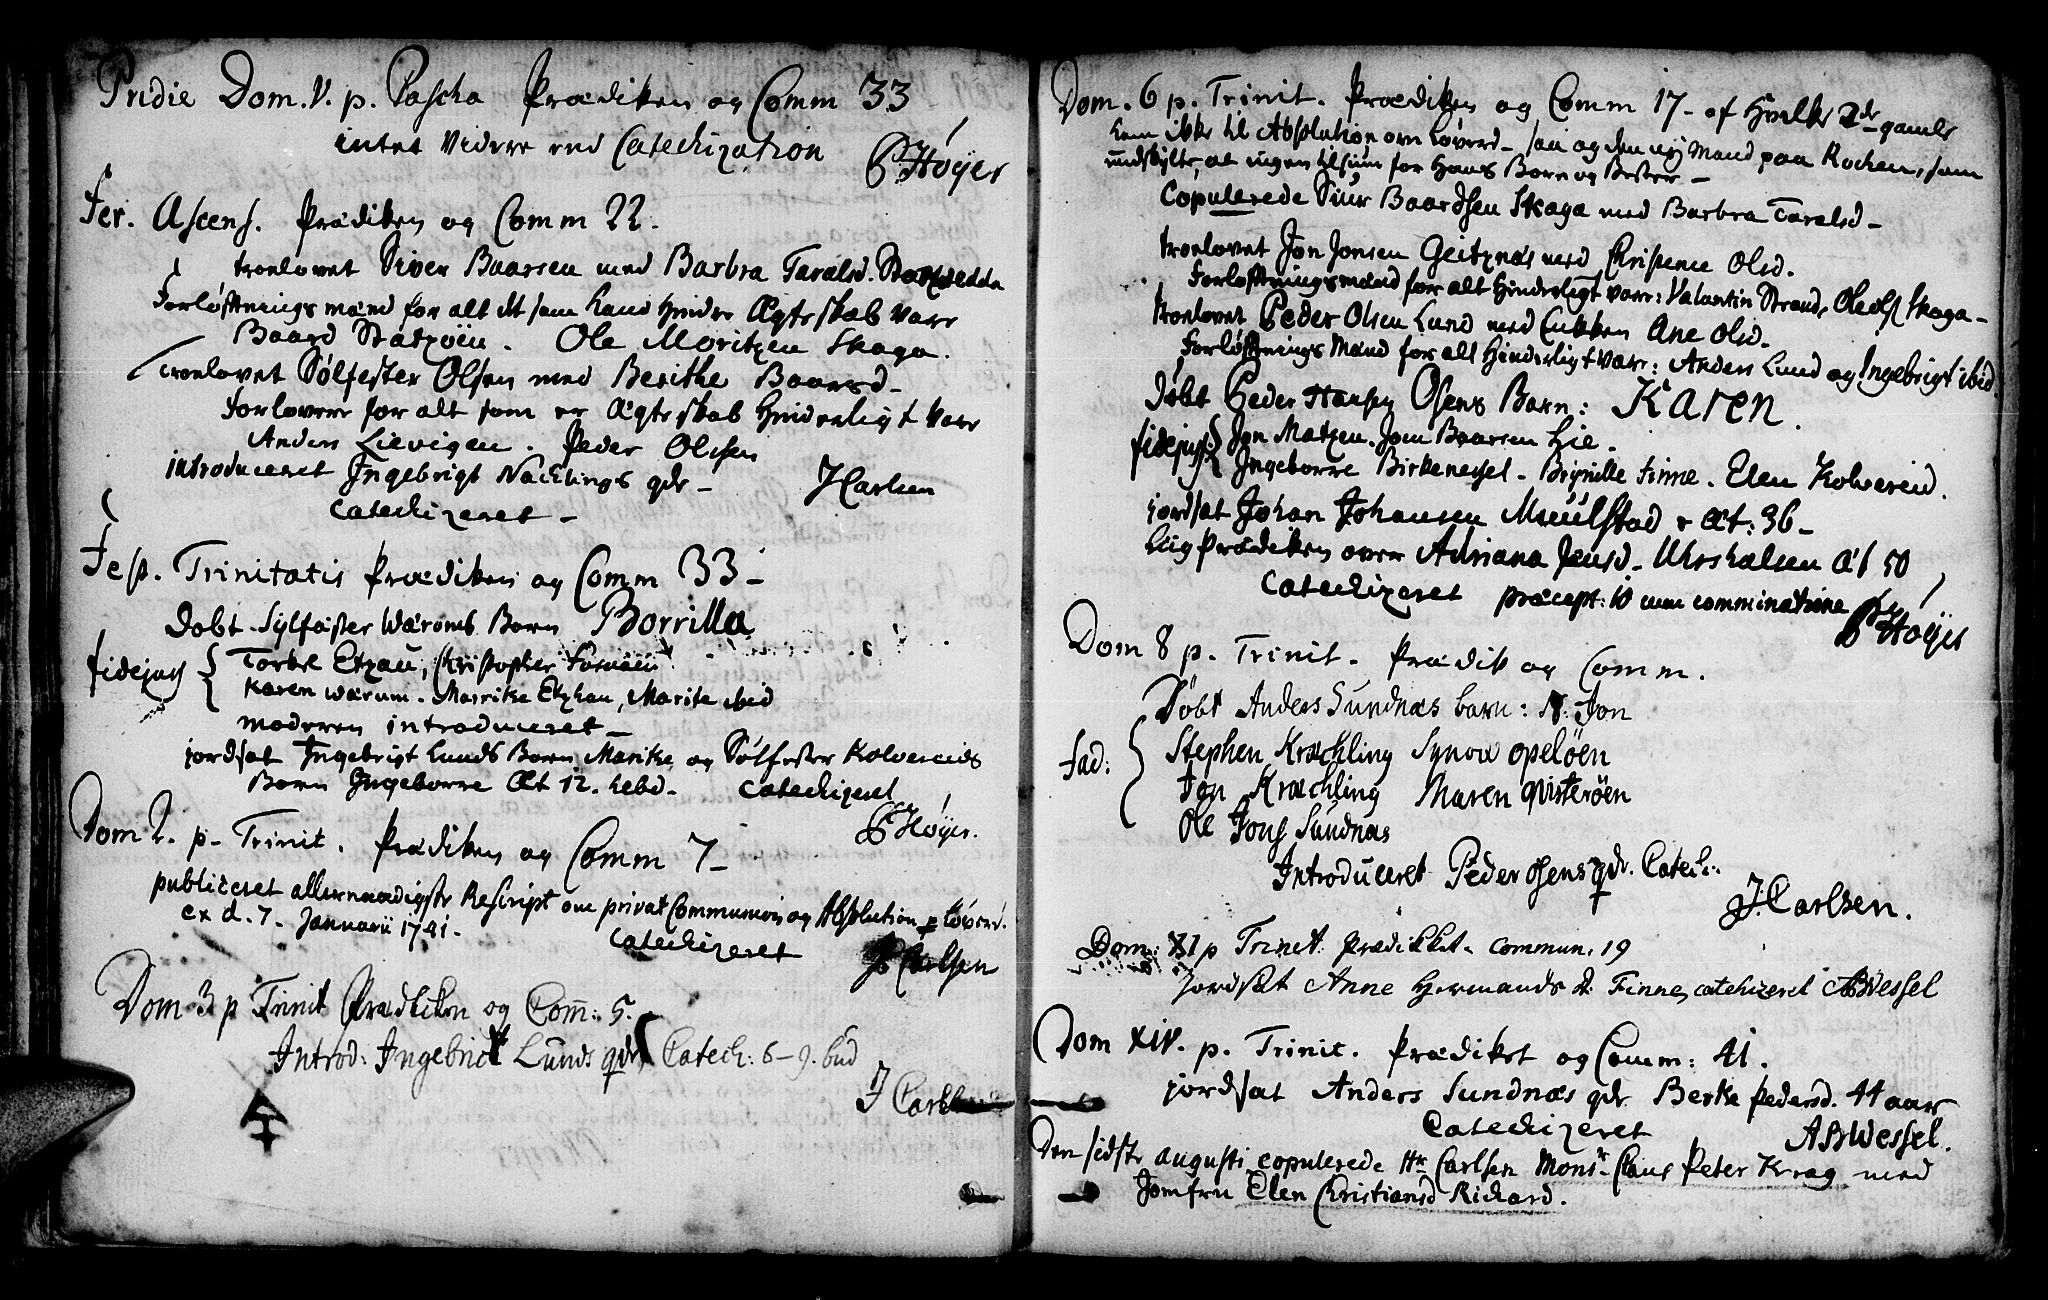 Pridie Dom. V. p. Pascha Prædiken og Comm 33
intet videre end Catechization
P Høyer
Fer. Ascens. Prædiken og Comm 22.
troelovet Siver Baarsen med Barbra Taralsd.
Forløftnings mænd for alt det som kand hindre Ægteskab vare
Baard Statzöen. Ole Moritzen Skaga.
Troelovet Sölfester Olsen med Berithe Baarsd-
Forlovere for alt som er Ægteskab hinderligt vare
Anders Lievigen. Peder Olssen
introduceret Ingebrigt Nachlings qdr- J Carlsen
Catechizeret-
Fest. Trinitatis Prædiken og Comm 33-
Døbt Sylfæster Wæroms Barn Borrilla
fidejuss { Torkel Etzau, Christopher
Karen Wærum. Marrite Etzhau, Marite ibid
moderen introduceret-
jordsat Ingebrigt Lunds Barn Marike og Sölfester Kolvereids
Barn Ingeborre Æt 12. hebd- Catechizeret
P Høyer.
Dom 2. p. Trinit. Prædiken og Comm 7-
publiceret allernaadigste Rescript om privat Communion og Absolution
ex d. 7. Januarii 1741.
Catechizeret
J Carlsen
Dom 3 p Trinit Prædiken og Com: 5.
Introd: Ingebrict Lunds qdr, Catech: 6-9. bud
J Carlsen
Dom. 6 p. Trinit. Prædiken og Comm 17- af hvilke 2de gamle
kom ikke til Absolution om Løverd- saa og den ny Mand paa Rochen, som
undskylte, at ingen tilsiun for hans Børn og Bester-
Copulerede Siur Baardsen Skaga med Barbra Taralsd-
troelovet Jon Jonsen Geitznæs med Christence Olsd.
Forløftningsmænd for alt hinderligt vare: Valantin Strand, Ole Ols Skaga-
troelovet Peder Olsen Lund med Enken Ane Olsd.
Forløftnings Mænd for alt hinderligt vare: Anders Lund og Ingebrigt ibid
Døbt Peder Hansen Osens Barn: Karen.
fidejuss: { Jon Matzen. Jom Baarsen Lie.
Ingeborre Birkenessel- Brynille Finne. Elen Kolvereid.
jordsat Johan Johansen Muulstad æt: 36-
Liigprædiken over Adriana Jensd- Uhrshalsen Æt 50
Catechizeret præcept: 10 cum comminatione P Høyer
Dom 8 p. Trinit. Prædik og Comm.
Døbt Anders Sundnæs barn: N: Jon
Fad: { Stephen Krachling Synow Opelöen
Jon Krachling Maren Qvisteröen
Ole Jons Sundnæs
Introduceret Peder Osens qdr. Catech:
J: Carlsen.
Dom: XI p Trinit: Prædikket- commun. 19
Jordsat Anne Hermands D. Finne, catechizeret ABWessel
Dom XIV. p. Trinit. Prædiket og Comm: 41.
jordsat Anders Sundnæs qdr. Berke Pedersd. 44 aar
Catechizeret ABWessel.
Den sidste augusti copulerede Hr Carlsen Monsr Claus Peter Krag med
Jomfru Elen Christiansd Richard.